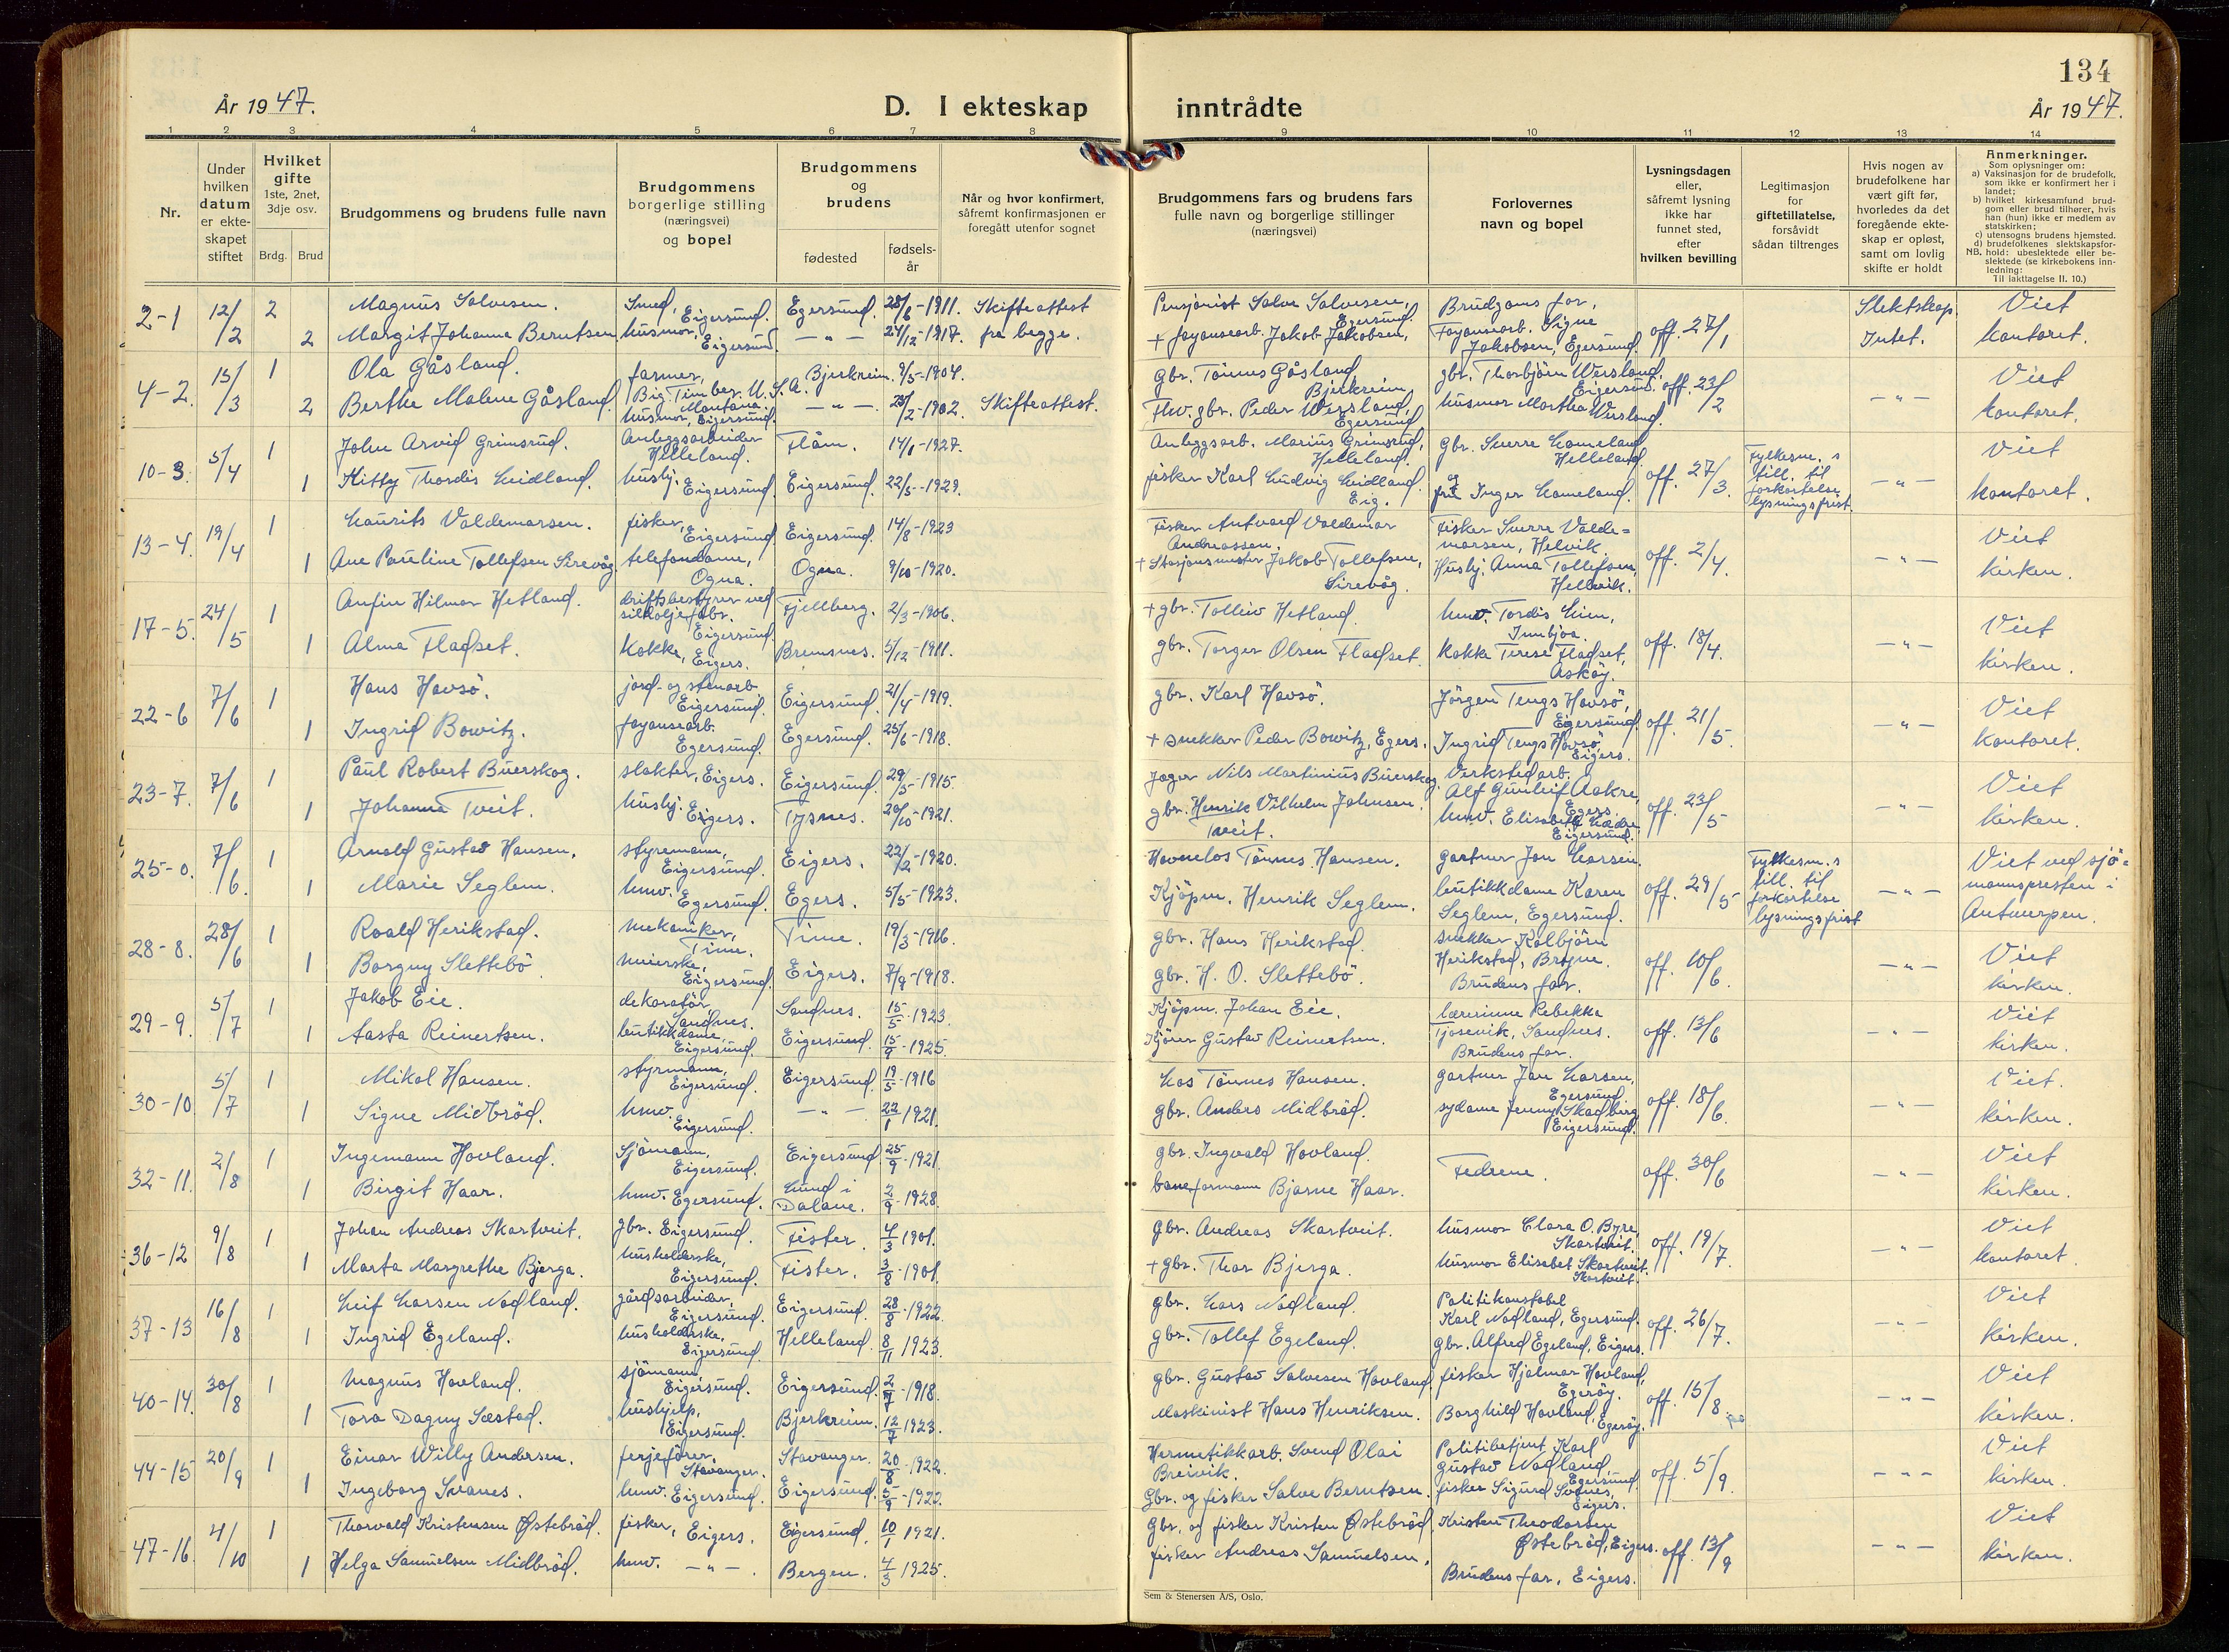 134
År 1947.
D. I ekteskap inntrådte
År 1947.
1 2 3 4 5 6 7 8 9 10 11 12 13 14
Nr.
Under hvilken datum er ekteskapet stiftet
Hvilket gifte 1ste, 2net, 3dje osv.
Brdg. Brud
Brudgommens og brudens fulle navn
Brudgommens borgerlige stilling (næringsvei) og bopel
Brudgommens og brudens
fødested
fødsels-år
Når og hvor konfirmert, såfremt konfirmasjonen er foregått utenfor sognet
Brudgommens fars og brudens fars fulle navn og borgerlige stillinger (næringsvei)
Forlovernes navn og bopel
Lysningsdagen eller, såfremt lysning ikke har funnet sted, efter hvilken bevilling
Legitimasjon for giftetillatelse, forsåvidt sådan tiltrenges
Hvis nogen av brudefolkene har vært gift før, hvorledes da det foregående ekteskap er opløst, samt om lovlig skifte er holdt
Anmerkninger.
Som oplysninger om:
a) Vaksinasjon for de brudefolk, som ikke er konfirmert her i landet;
b) hvilket kirkesamfund brudgom eller brud tilhører, hvis han (hun) ikke er medlem av statskirken;
c) utensogns brudens hjemsted.
d) brudefolkenes slektskapsforhold: ubeslektede eller beslektede (se kirkebokens innledning:
NB. Til iakttagelse II. 10.)
2-1 12/2 2 Magnus Salvesen. Smed, Eigersund. Egersund. 28/6-1911. Skifteattest Pensjonist Salve Salvesen, Egersund. Brudgoms far, off. 27/1 Slektskap. Viet
2 Margit Johanne Berntsen husmor, Eigersund. -"- 24/12-1917. fra begge. + fayansearb. Jakob Jakobsen, Fayansearb. Signe Jakobsen, Egersund. Intet. kontoret.
4-2. 15/3 1 Ola Gåsland. farmer, Big Timber. U.S.A. Montana. Bjerkreim. 9/5-1904. gbr. Tönnes Gåsland Bjerkreim gbr. Thorbjörn Wersland, Eigersund. off. 23/2 Viet
2 Berthe Malene Gåsland. husmor, Eigersund. -"- 23/2-1902. Skifteattest. Fhv. gbr. Peder Wersland, Egersund husmor Martha Wersland. kontoret.
10-3. 5/4 1 John Arvid Grimsrud. Anleggsarbeider Helleland. Flåm. 14/1-1927. Anleggsarb. Marius Grimsrud, Helleland. Gbr. Sverre Lomeland Helleland off. 27/3. Fylkesm.s till. til forkortelse lysningsfrist. -"- Viet
1 Kitty Thordis Leidland. hushj. Eigersund. Eigersund. 22/5-1929. fisker Karl Ludvig Leidland. Eig. og fru Inger Lomeland. kontoret.
13-4. 19/4 1 Laurits Valdemarsen. fisker, Eigersund. Eigersund. 14/8-1923 Fisker Antvard Valdemar Andreassen. Fisker Sverre Valdemarsen, Helvik. off. 2/4. -"- Viet
1 Ane Pauline Tollefsen Sirevåg. telefondame, Ogna. Ogna. 9/10-1920. + Stasjonsmester Jakob Tollefsen, Sirevåg. Hushj. Anna Tollefsen, Hellvik. kirken.
17-5. 24/5 1 Anfin Hilmar Hetland. driftsbestyrer ved sildoljefabr. Eigersund. Fjellberg. 2/3-1906. + gbr. Tolleiv Hetland. hmv. Tordis Lien, Innbjoa. off. 18/4. -"- Viet
1 Alma Fladset. Kokke, Eigers. Bremsnes. 5/12-1911. gbr. Torger Olsen Fladset. Kokke Terese Fladset, Askøy. kirken.
22-6 7/6 1 Hans Havsö. jord- og stenarb. Eigersund. Eigersund. 21/4-1919. gbr. Karl Havsö. Jörgen Tengs Havsö, Eigersund. off. 21/5. -"- Viet
1 Ingrid Bowitz. fayansearb. Egersund. Egersund. 25/6-1918. + snekker Peder Bowitz, Egers. Ingrid Tengs Havsö, Eigers. kontoret.
23-7. 7/6 1 Paul Robert Buerskog. slakter, Eigers. Eigersund. 29/5-1915. Jager Nils Martinius Buerskog. Verkstedarb. Alf Gunleif Aakre, Egers. off. 23/5 -"- Viet
1 Johanna Tveit. hushj. Eigers. Tysnes. 20/10-1921. gbr. Henrik Vilhelm Johnsen Tveit. hmv. Elisabeth Lædre Eigersund. kirken.
25-0. 7/6. 1 Arnold Gustav Hansen. styremann, Eigersund. Eigers. 22/2-1920. Havnelos Tönnes Hansen. gartner Jan Larsen. off. 29/5 Fylkesm.s till. til forkortelse lysningsfrist -"- Viet ved sjö-
1 Marie Seglem. hmv. Egersund. Egers. 5/5-1923. Kjöpm. Henrik Seglem. butikkdame Karen Seglem, Egersund. mannspresten i Antwerpen.
28-8. 28/6 1 Roald Herikstad. mekaniker, Time. Time. 19/3-1916. gbr. Hans Herikstad. snekker Kolbjörn Herikstad, Bryne. off. 10/6. -"- Viet
1 Borgny Slettebö meierske, Eigersund. Eigers. 7/9-1918. gbr. H. O. Slettebö. Brudens far. kirken.
29-9. 5/7 1 Jakob Eie. dekoratör, Sandnes. Sandnes. 15/5-1923. Kjöpm. Johan Eie. lærerinne Rebekke Tjosevik, Sandnes. off. 13/6 -"- Viet
1 Aasta Reinertsen. butikkdame, Eigersund. Eigersund. 15/9-1925. Kjörer Gustav Reinertsen. Brudens far. kirken.
30-10. 5/7 1 Mikal Hansen. styrmann, Eigersund. Eigersund. 19/5-1916 Los Tönnes Hansen. gartner Jan Larsen, Egersund. off. 18/6. -"- Viet.
1 Signe Midbröd. hmv. Eigersund. -"- 22/1 1921. gbr. Anders Midbröd. sydame Jenny Skadberg Eigersund. kirken.
32-11. 2/8 1 Ingemann Hovland. Sjömann, Eigersund. Eigersund 25/9-1921. gbr. Ingvald Hovland. Fedrene. off. 30/6 -"- Viet
1 Birgit Haar. hmv. Egersund. Lund i Dalane. 2/9-1928. baneformann Bjarne Haar. kirken.
36-12 9/8 1 Johan Andreas Skartveit. gbr. Eigersund. Fister. 4/3 1901. gbr. Andreas Skartveit. husmor Clara O. Byre, Skartveit. off. 19/7. -"- Viet
1 Marta Margrethe Bjerga. husholderske, Eigersund. Fister. 3/8-1901. + gbr. Thor Bjerga. husmor Elisabet Skartveit. Skartveit. kontoret.
37-13 16/8 1 Leif Larsen Nodland. gårdsarbeider, Eigersund. Eigersund. 28/8-1922. gbr. Lars Nodland. Politikonstabel Karl Nodland, Egersund. off. 26/7. -"- Viet
1 Ingrid Egeland. husholderske, Eigersund. Helleland. 8/11 1923. gbr. Tollef Egeland. gbr. Alfred Egeland, Eigers. kirken.
40-14. 30/8 1 Magnus Hovland. sjömann Eigersund. Eigersund. 2/7-1918. gbr. Gustav Salvesen Hovland fisker Hjalmar Hovland, Egeröy. off. 15/8. -"- Viet
1 Tora Dagny Sæstad. hushjelp, Eigersund. Bjerkreim. 12/7 1923. Maskinist Hans Henriksen. Borghild Hovland, Egeröy. kirken.
44-15 20/9 1 Einar Willy Andersen. ferjeförer, Stavanger. Stavanger. 20/8-1922. Hermetikkarb. Svend Olai Breivik. Politibetjent Karl Gustav Nodland, Egersund. off. 5/9. -"- Viet
1 Ingeborg Svanes. hmv. Eigersund. Eigersund. 5/9-1922. Gbr. og fisker Salve Berntsen. fisker Sigurd Svanes, Eigers. kirken.
47-16. 4/10 1 Thorvald Kristensen Østebröd. fisker, Eigers. Eigersund. 10/1 1921. Gbr. og fisker Kristen Østebröd. Kristen Theodorsen Østebröd, Eigers. off. 13/9 -"- Viet
1 Helga Samuelsen Midbröd. hmv. -"-. Bergen. 4/3 1925. fisker Andreas Samuelsen. Brudens far, Eigers. kirken.
Sem & Stenersen A/S, Oslo.